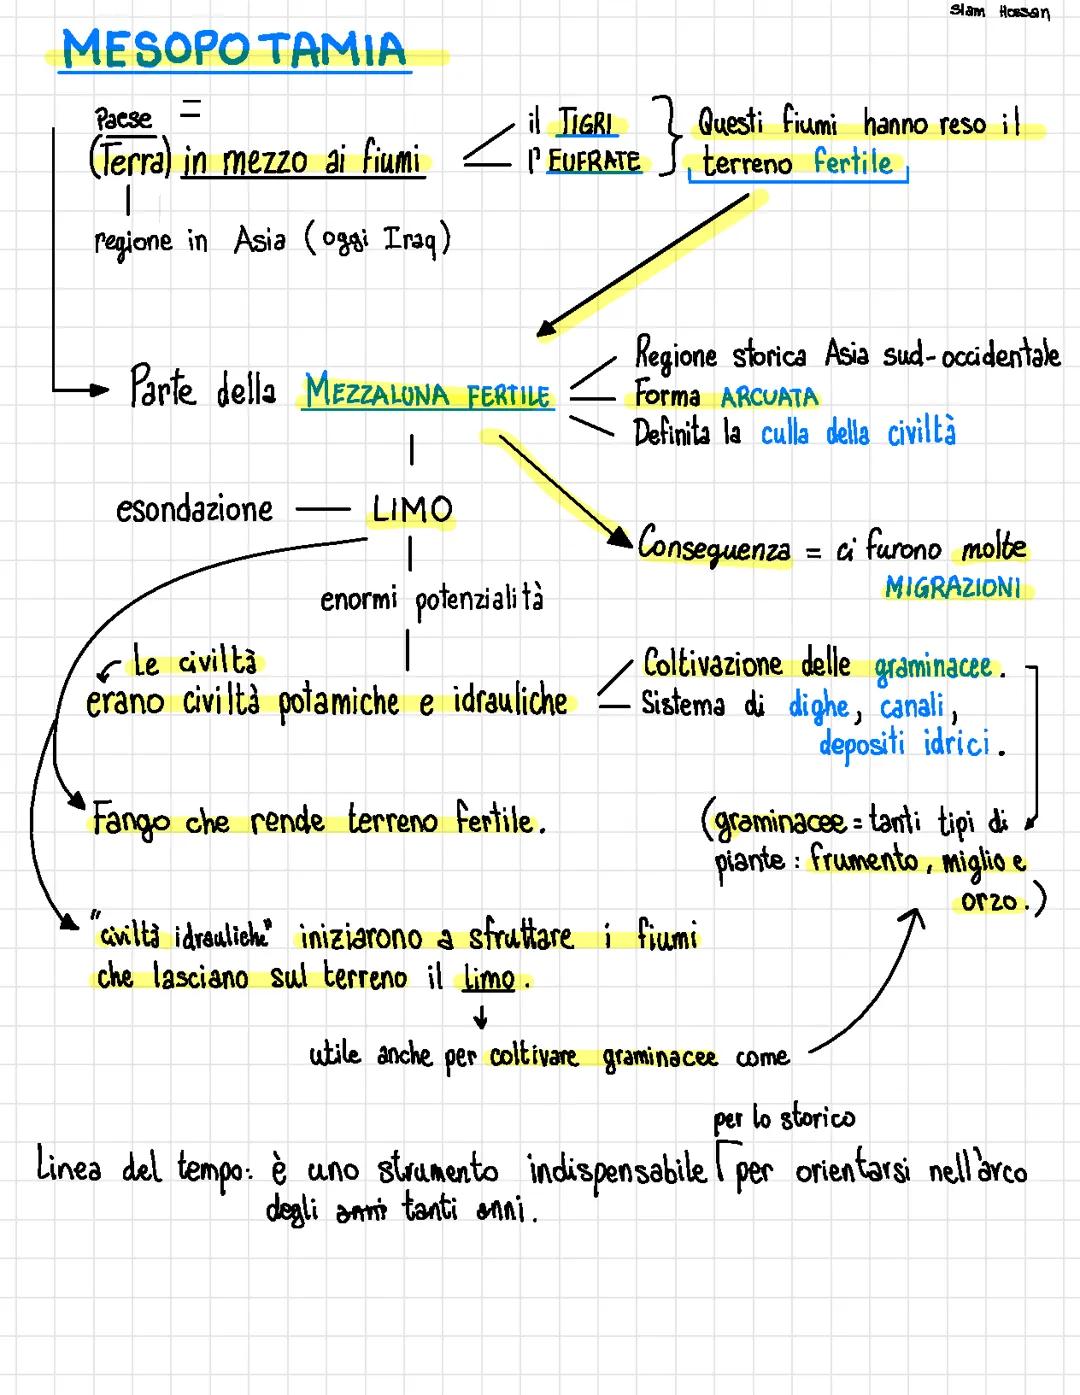 Slam Hossan
MESOPOTAMIA
Paese =
(Terra) in mezzo ai fiumi
il TIGRI
l'EUFRATE
Questi fiumi hanno reso il
terreno fertile
regione in Asia (oggi Iraq)
Parte della MEZZALUNA FERTILE
Regione storica Asia sud-occidentale
Forma ARCUATA
Definita la culla della civiltà
esondazione — LIMO
Conseguenza = ci furono molte
MIGRAZIONI
enormi potenzialità
Le civiltà
erano civiltà potamiche e idrauliche
Coltivazione delle graminacee.
Sistema di dighe, canali,
depositi idrici.
Fango che rende terreno fertile.
(graminacee = tanti tipi di
piante: frumento, miglio e
orzo.)
"civiltà idrauliche" iniziarono a sfruttare i fiumi
che lasciano sul terreno il limo.
utile anche per coltivare graminacee come
per lo storico
Linea del tempo: è uno strumento indispensabile per orientarsi nell'arco
degli anni tanti anni.